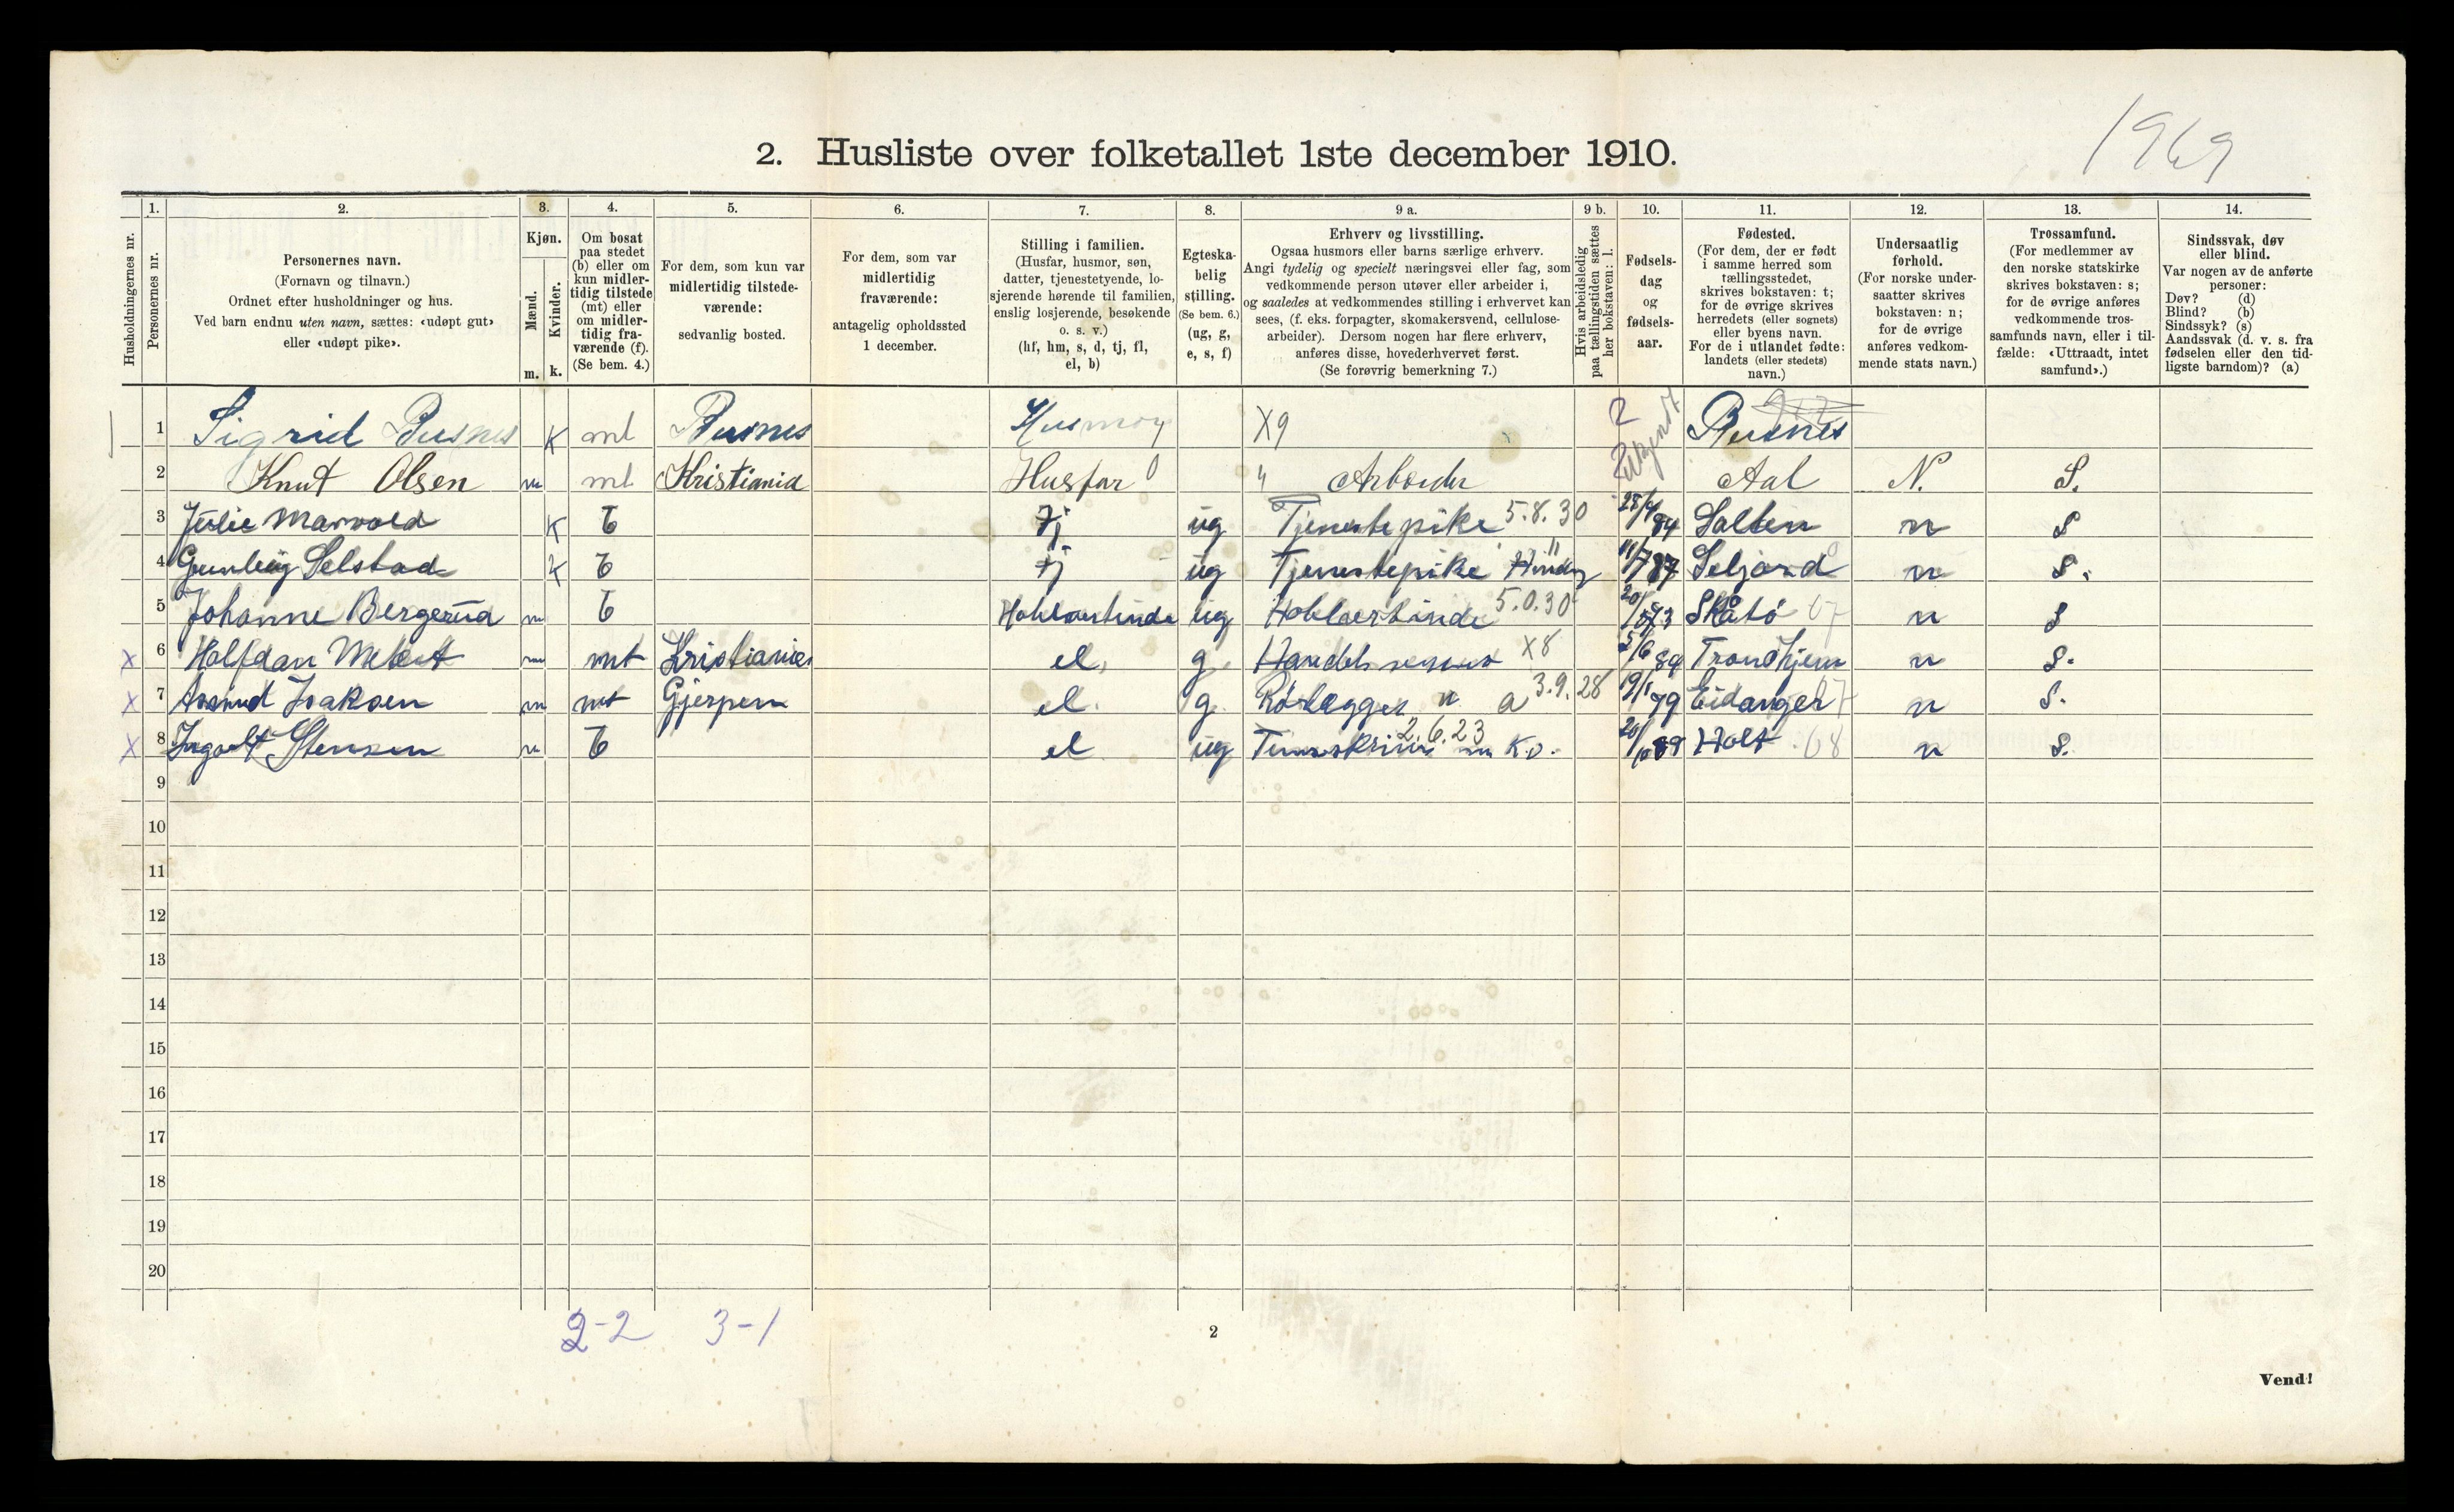 1969
2. Husliste over folketallet 1ste december 1910.
Husholdningernes nr.
1. Personernes nr.
2. Personernes navn.
(Fornavn og tilnavn.)
Ordnet efter husholdninger og hus.
Ved barn endnu uten navn, sættes: «udøpt gut»
eller «udøpt pike».
3. Kjøn.
Mænd. m.
Kvinder. k.
4. Om bosat
paa stedet
(b) eller om
kun midler-
tidig tilstede
(mt) eller
om midler-
tidig fra-
værende (f).
(Se bem. 4.)
5. For dem, som kun var
midlertidig tilstede-
værende:
sedvanlig bosted.
6. For dem, som var
midlertidig
fraværende:
antagelig opholdssted
1 december.
7. Stilling i familien.
(Husfar, husmor, søn,
datter, tjenestetyende, lo-
sjerende hørende til familien,
enslig losjerende, besøkende
o. s. v.)
(hf, hm, s, d, tj, fl,
el, b)
8. Egteska-
belig
stilling.
(Se bem. 6.)
(ug, g,
e, s, f)
9 a. Erhverv og livsstilling.
Ogsaa husmors eller barns særlige erhverv.
Angi tydelig og specielt næringsvei eller fag, som
vedkommende person utøver eller arbeider i,
og saaledes at vedkommendes stilling i erhvervet kan
sees, (f. eks. forpagter, skomakersvend, cellulose-
arbeider). Dersom nogen har flere erhverv,
anføres disse, hovederhvervet først.
(Se forøvrig bemerkning 7.)
9 b. Hvis arbeidsledig
paa tællingstiden sættes
her bokstaven: l.
10. Fødsels-
dag
og
fødsels-
aar.
11. Fødested.
(For dem, der er født
i samme herred som
tællingsstedet,
skrives bokstaven: t;
for de øvrige skrives
herredets (eller sognets)
eller byens navn.
For de i utlandet fødte:
landets (eller stedets)
navn.)
12. Undersaatlig
forhold.
(For norske under-
saatter skrives
bokstaven: n;
for de øvrige
anføres vedkom-
mende stats navn.)
13. Trossamfund.
(For medlemmer av
den norske statskirke
skrives bokstaven: s;
for de øvrige anføres
vedkommende tros-
samfunds navn, eller i til-
fælde: «Uttraadt, intet
samfund».)
14. Sindssvak, døv
eller blind.
Var nogen av de anførte
personer:
Døv? (d)
Blind? (b)
Sindssyk? (s)
Aandssvak (d. v. s. fra
fødselen eller den tid-
ligste barndom)? (a)
1 Sigrid K mt Husmor X9 2
2 Knut Olsen m mt Kristiania Husfar " Arbeider Aal N. S.
3 Julie K b tj ug Tjenestepike 5.8.30 84 n S
4 Selstad K b tj ug Tjenestepike " 11/7 87 Seljord n S.
5 Johanne Bergerud m b ug 5.0.30 Skåtö 07 n S
X 6 Halfdan m mt Kristiania el. g. X8 5/6 89 Trondhjem n S.
X 7 Isaksen m mt Gjerpen el. g. Rørlægger a 3.9.28 19/1 79 Eidanger 07 n S.
X 8 Ingolf Stensen m b el ug 2.6.23 89 Holt 08 n S.
9
10
11
12
13
14
15
16
17
18
19
20
2-2 3-1
2
Vend!